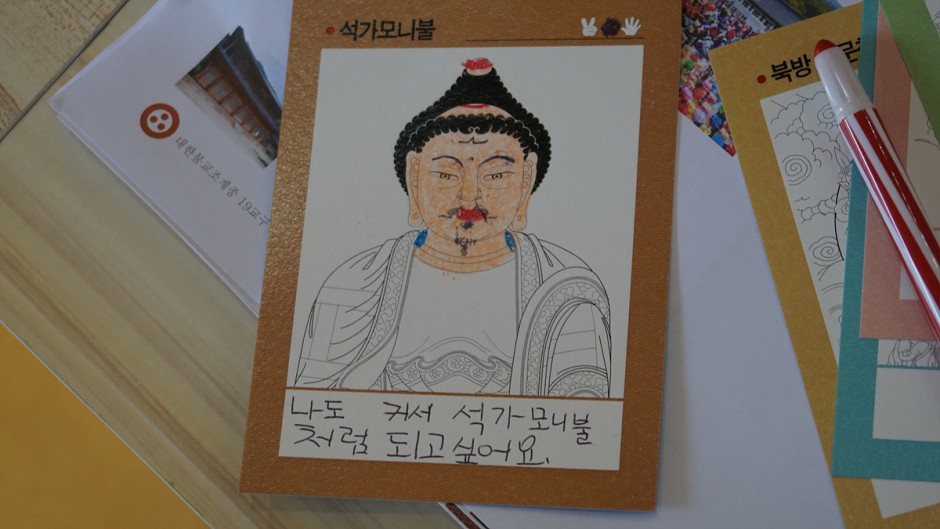 석가모니불
나도 커서 석가모니불
처럼 되고싶어요.
대한불교조계종 19교구
북방